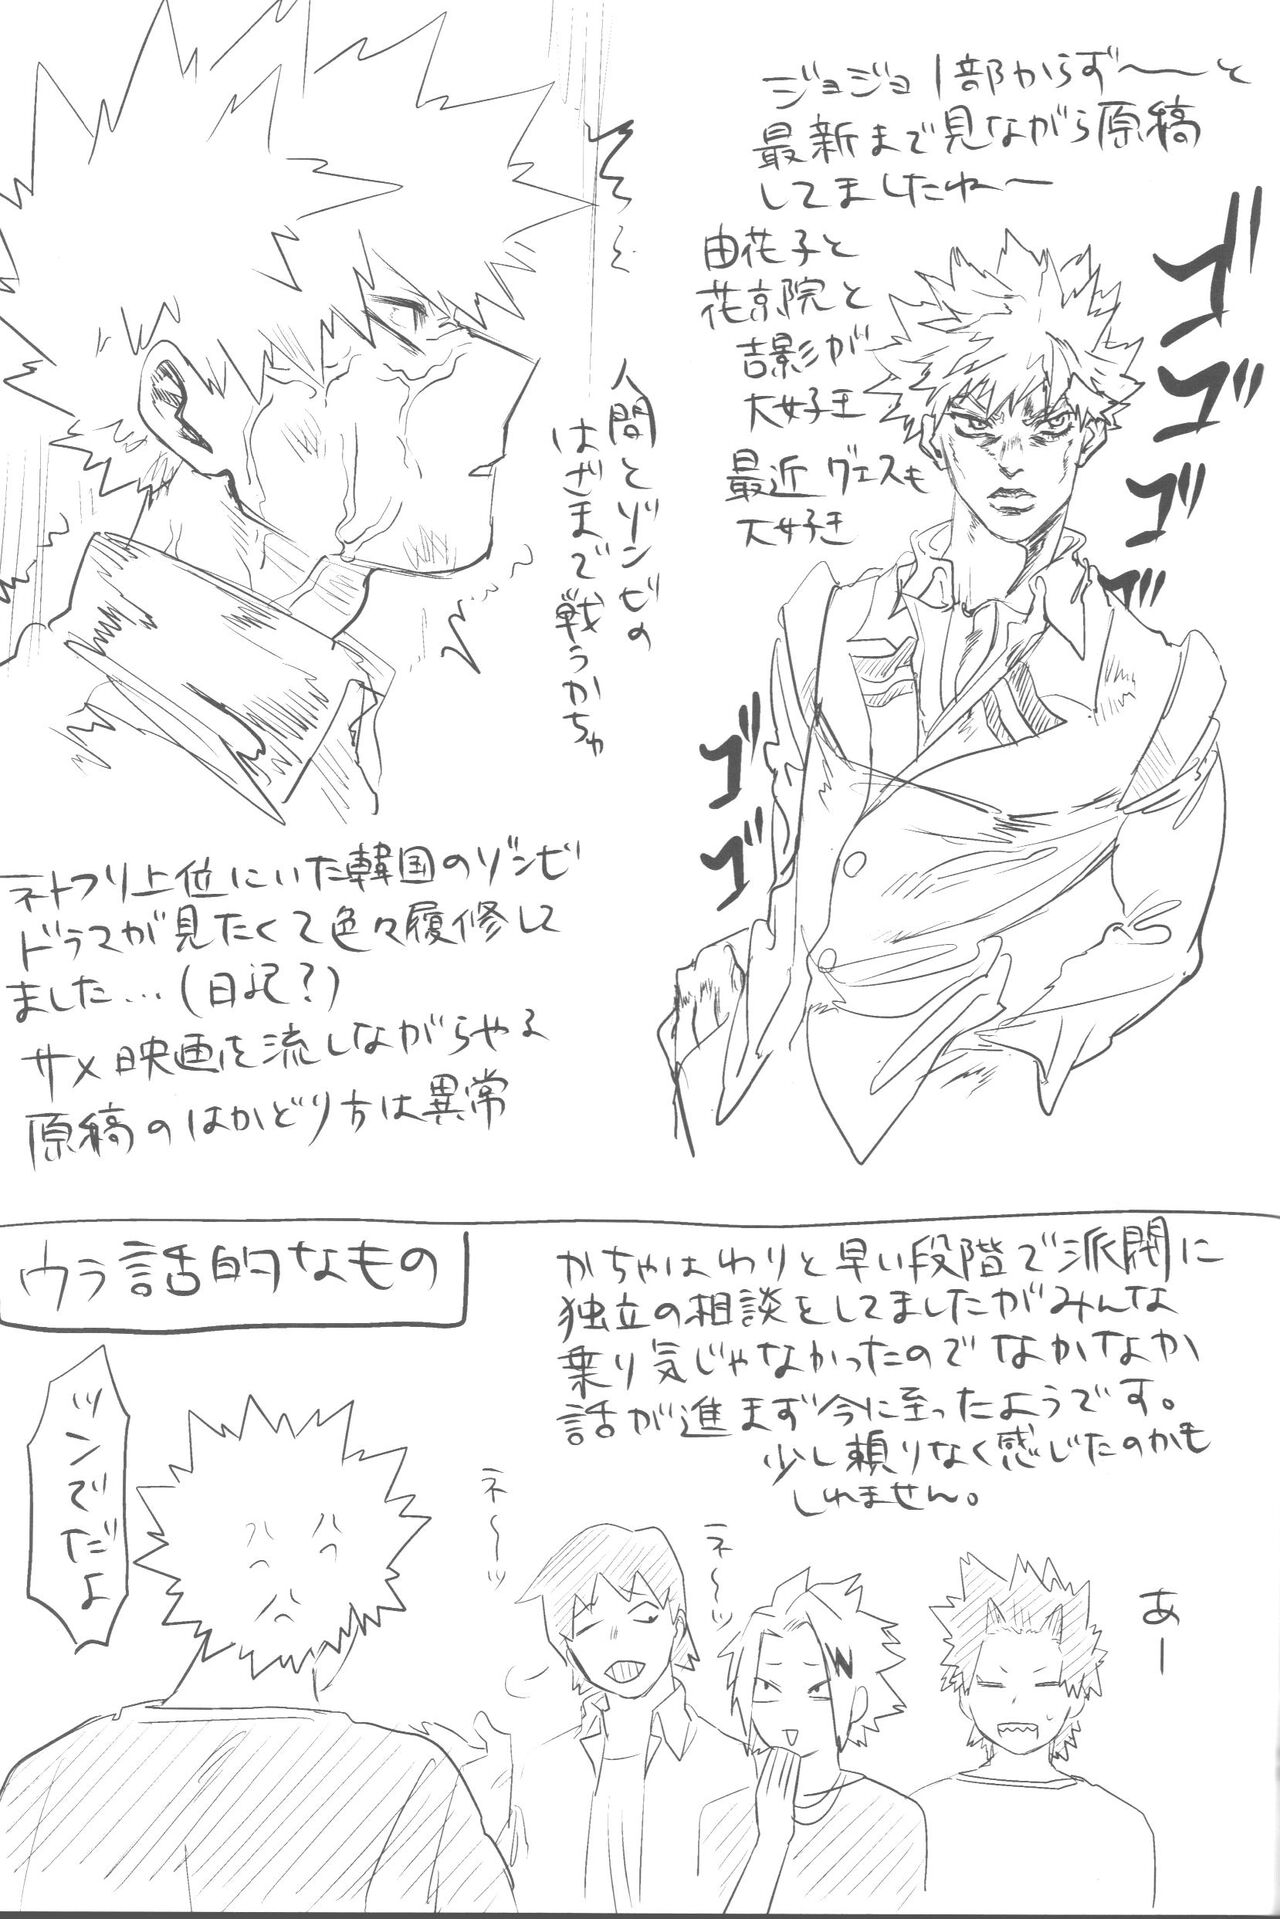 ジョジョ1部からず〜〜と
最新まで見ながら原稿
してましたね〜
由花子と
花京院と
吉影が
大好き
最近グェスも
大好き
ゴ
ゴ
ゴ
ゴ
ゴ
ゴ
人間とゾンビの
はざまで戦うかちゃ
ネトフリ上位にいた韓国のゾンビ
ドラマが見たくて色々履修して
ました…(日記?)
サメ映画を流しながらやる
原稿のはかどり方は異常
ウラ話的なもの
かちゃはわりと早い段階で派閥に
独立の相談をしてましたがみんな
乗り気じゃなかったのでなかなか
話が進まず今に至ったようです。
少し頼りなく感じたのかも
しれません。
ツンでだよ
ネ〜ッ
ネ〜ッ
あー